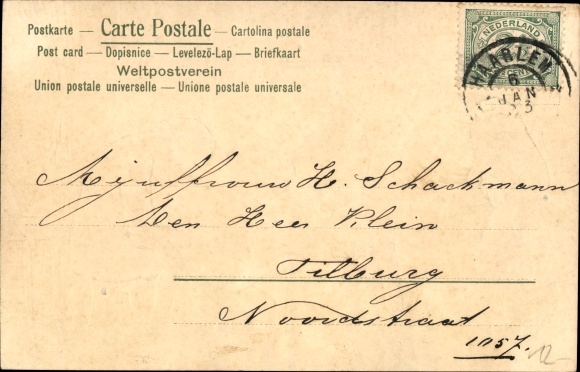 Postkarte — Carte Postale — Cartolina postale
Post card — Dopisnice — Levelező-Lap — Briefkaart
Weltpostverein
Union postale universelle — Unione postale universale
NEDERLAND
HAARLEM
6
JAN
Mejuffrouw H. Schackmann
Den Heer Klein
Tilburg
Noordstraat
1057.
12-